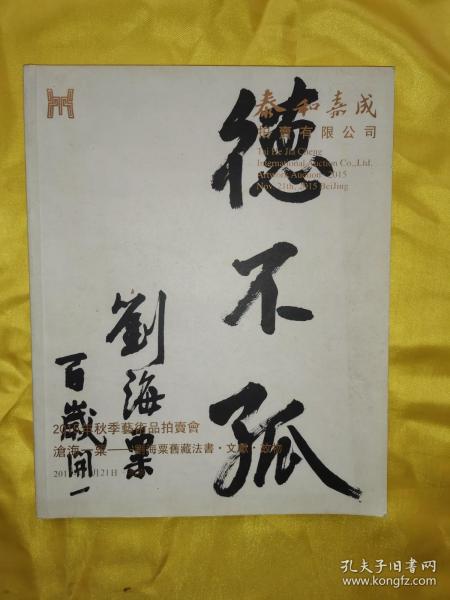 泰和嘉成
拍賣有限公司
Tai He Jia Cheng
International Auction Co., Ltd.
Artwork Auction 2015
Nov. 21th, 2015 BeiJing
德不孤
劉海粟
百歲開一
2015年秋季藝術品拍賣會
滄海一粟——劉海粟舊藏法書·文獻·
2015 月21日
孔夫子旧书网
www.kongfz.com